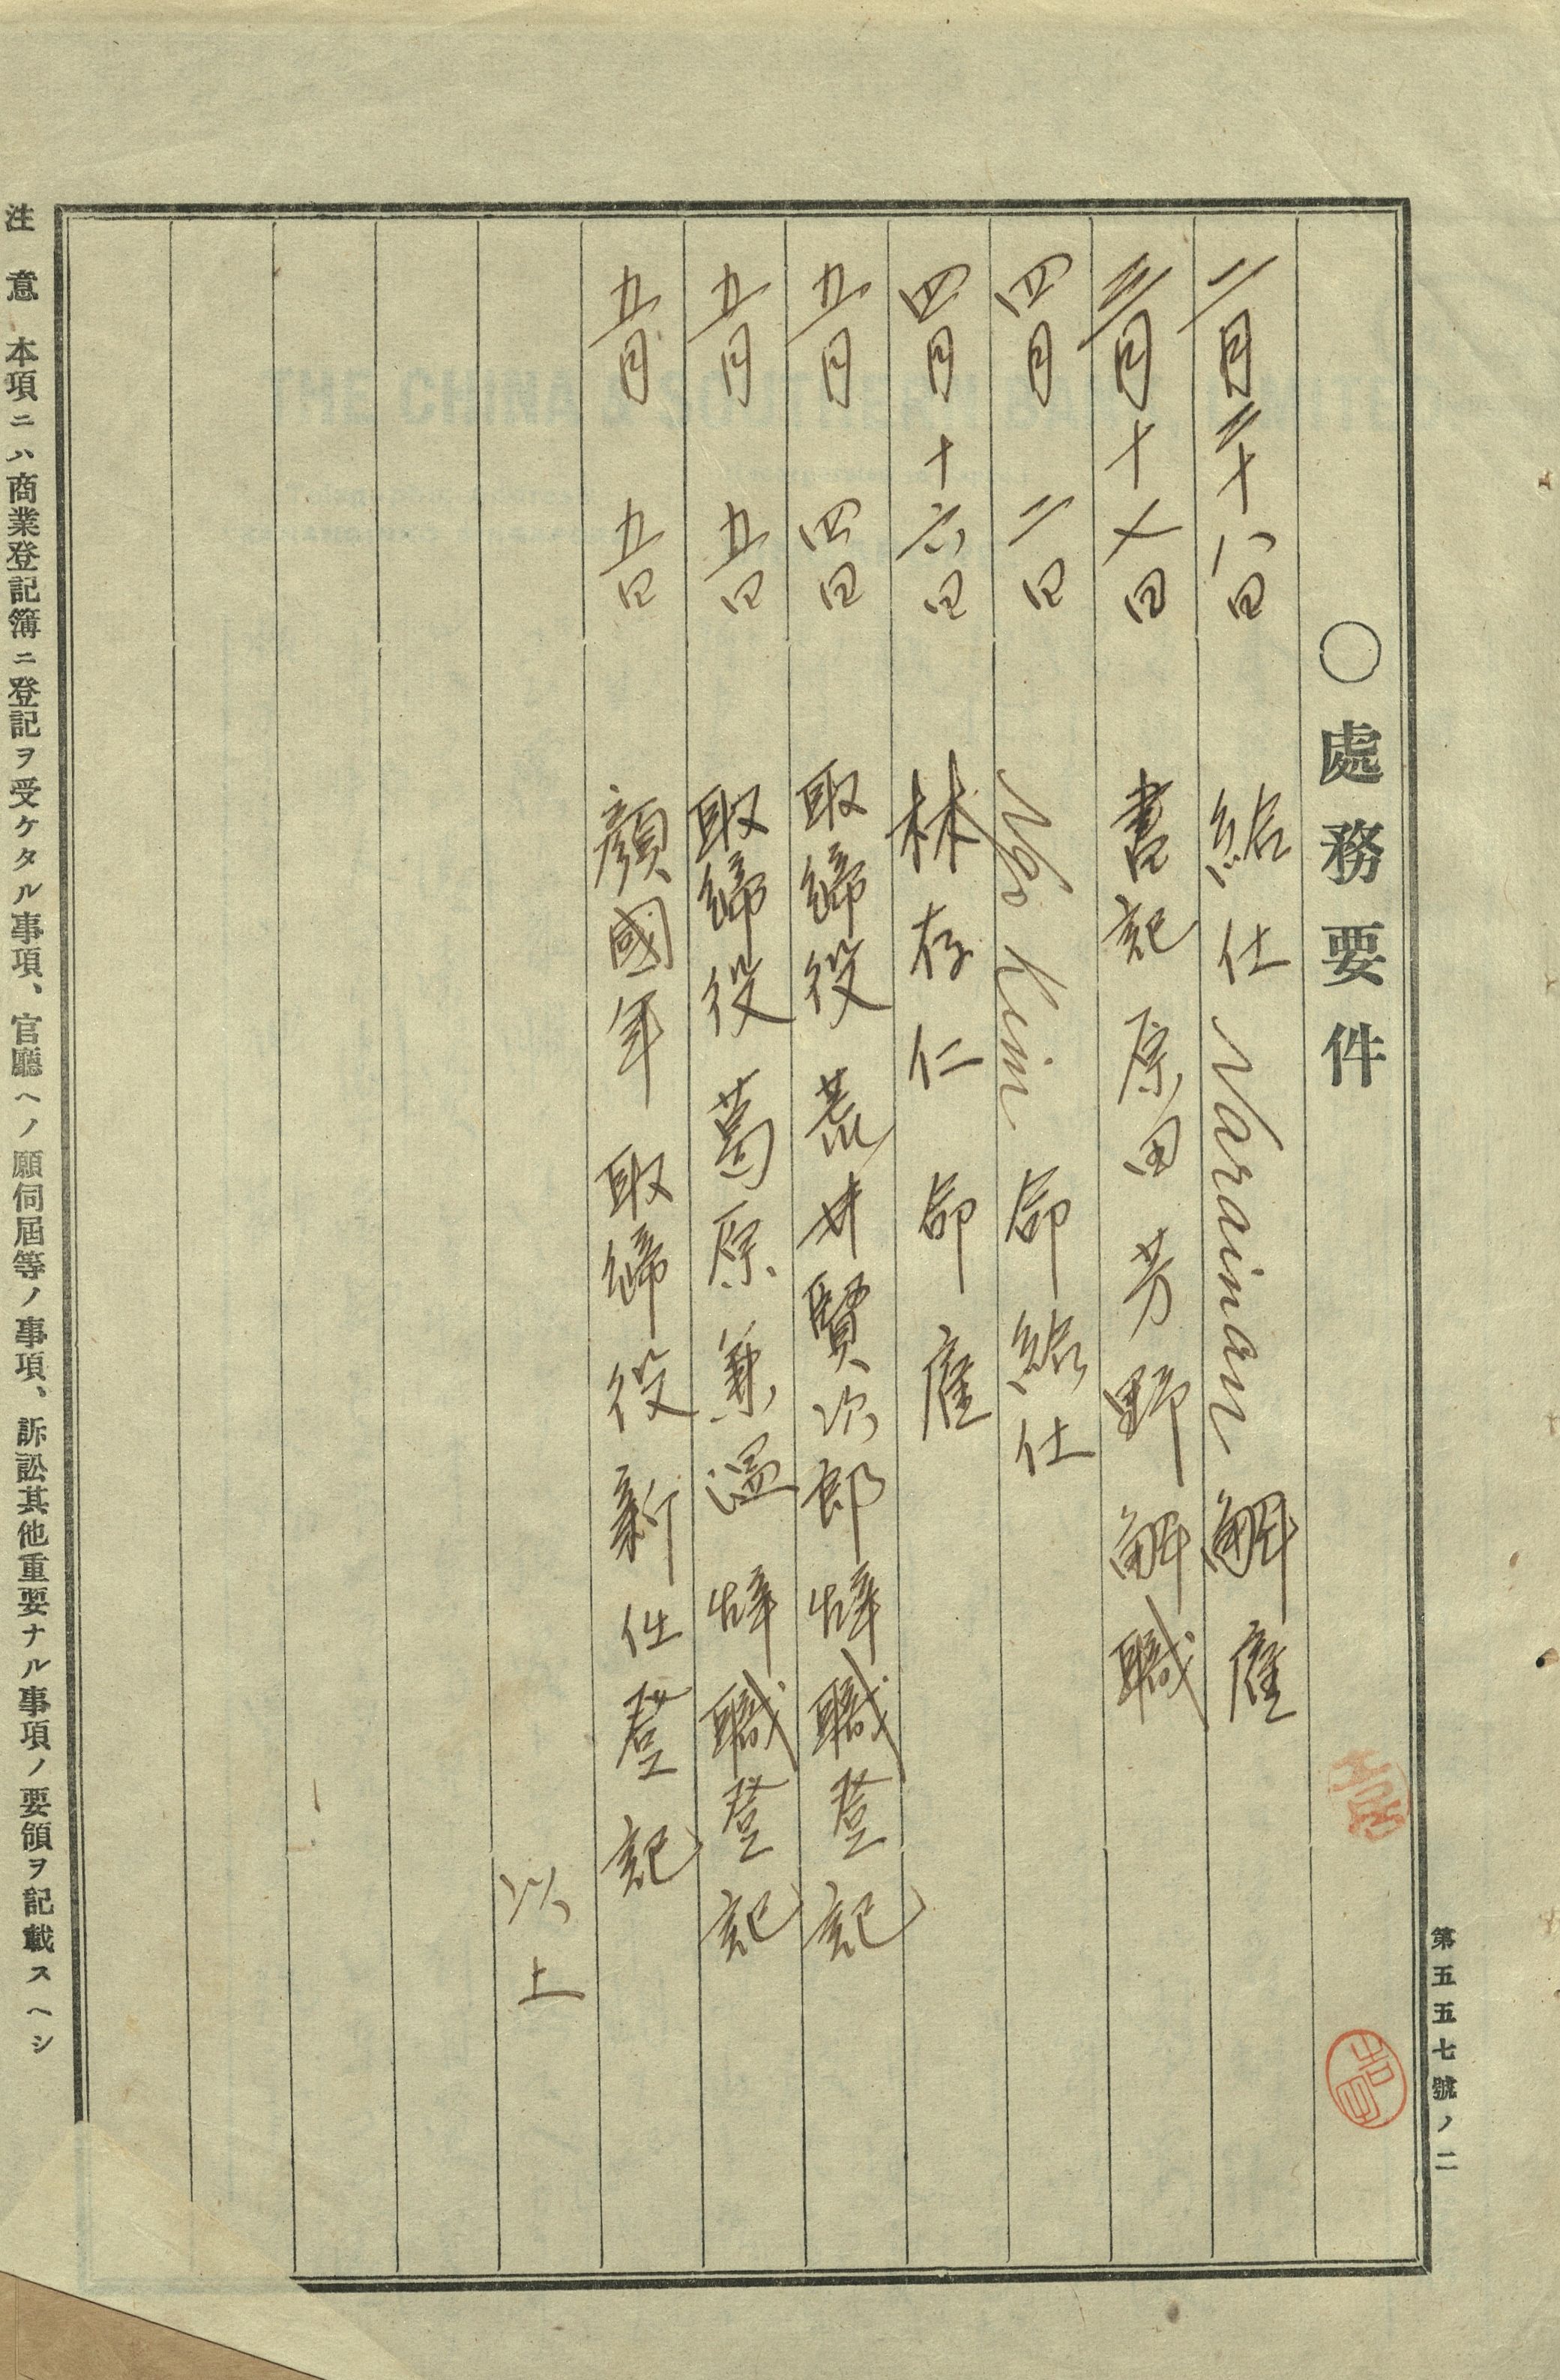 第五五七號ノ二
〇處務要件
二月二十八日 給仕 Narainan 解雇
三月十七日 書記 原田芳野 解職
四月二日 Ngo Kim 命給仕
四月十六日 林存仁 命雇
五月四日 取締役 荒井賢次郎 辞職登記
五月五日 取締役 葛原兼温 辞職登記
五月五日 顏國年 取締役新任登記
以上
注意 本項ニハ商業登記簿ニ登記ヲ受ケタル事項、官廳ヘノ願伺屆等ノ事項、訴訟其他重要ナル事項ノ要領ヲ記載スヘシ